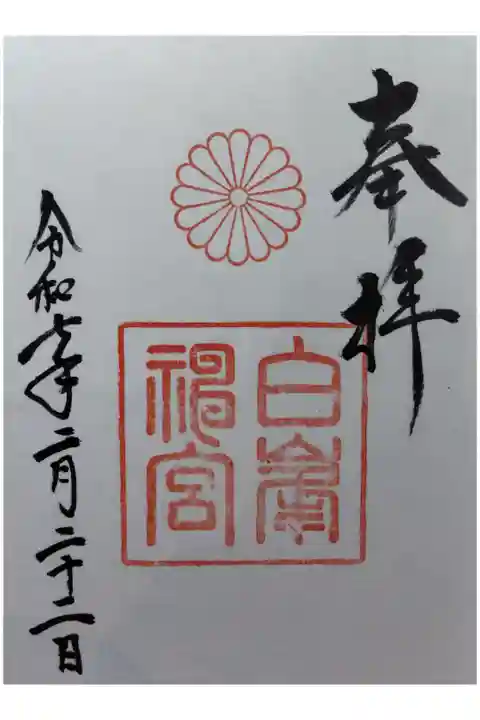 奉拝
白峯
神宮
令和七年二月二十二日